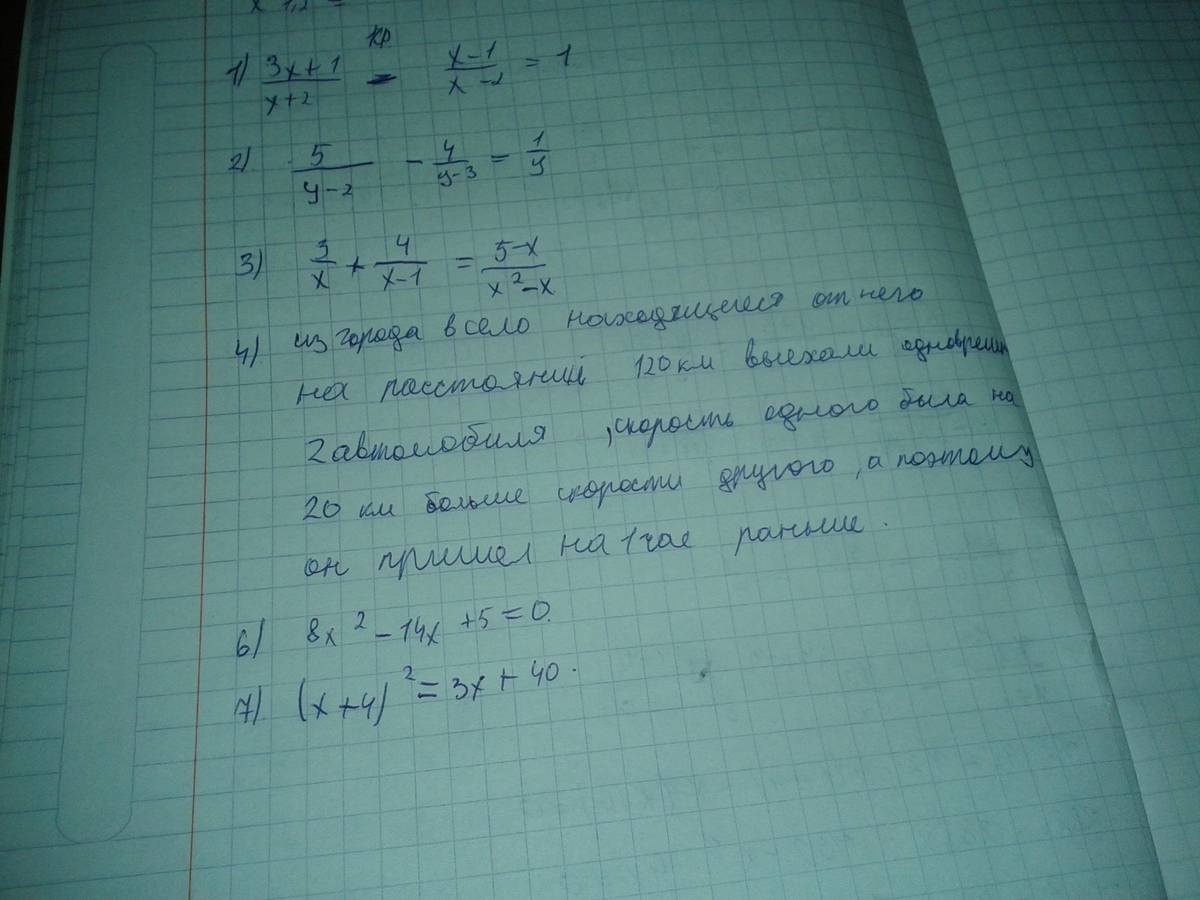 x 1,2 =
кр
1) (3x+1)/(x+2) - (x-1)/(x-2) = 1
2) 5/(y-2) - 4/(y-3) = 1/y
3) 3/x + 4/(x-1) = (5-x)/(x²-x)
4) из города в село находящиеся от него
на расстоянии 120 км выехали одноврем
2 автомобиля , скорость одного была на
20 км больше скорости другого , а поэтому
он пришел на 1 час раньше .
6) 8x² - 14x + 5 = 0.
7). (x+4)² = 3x + 40.